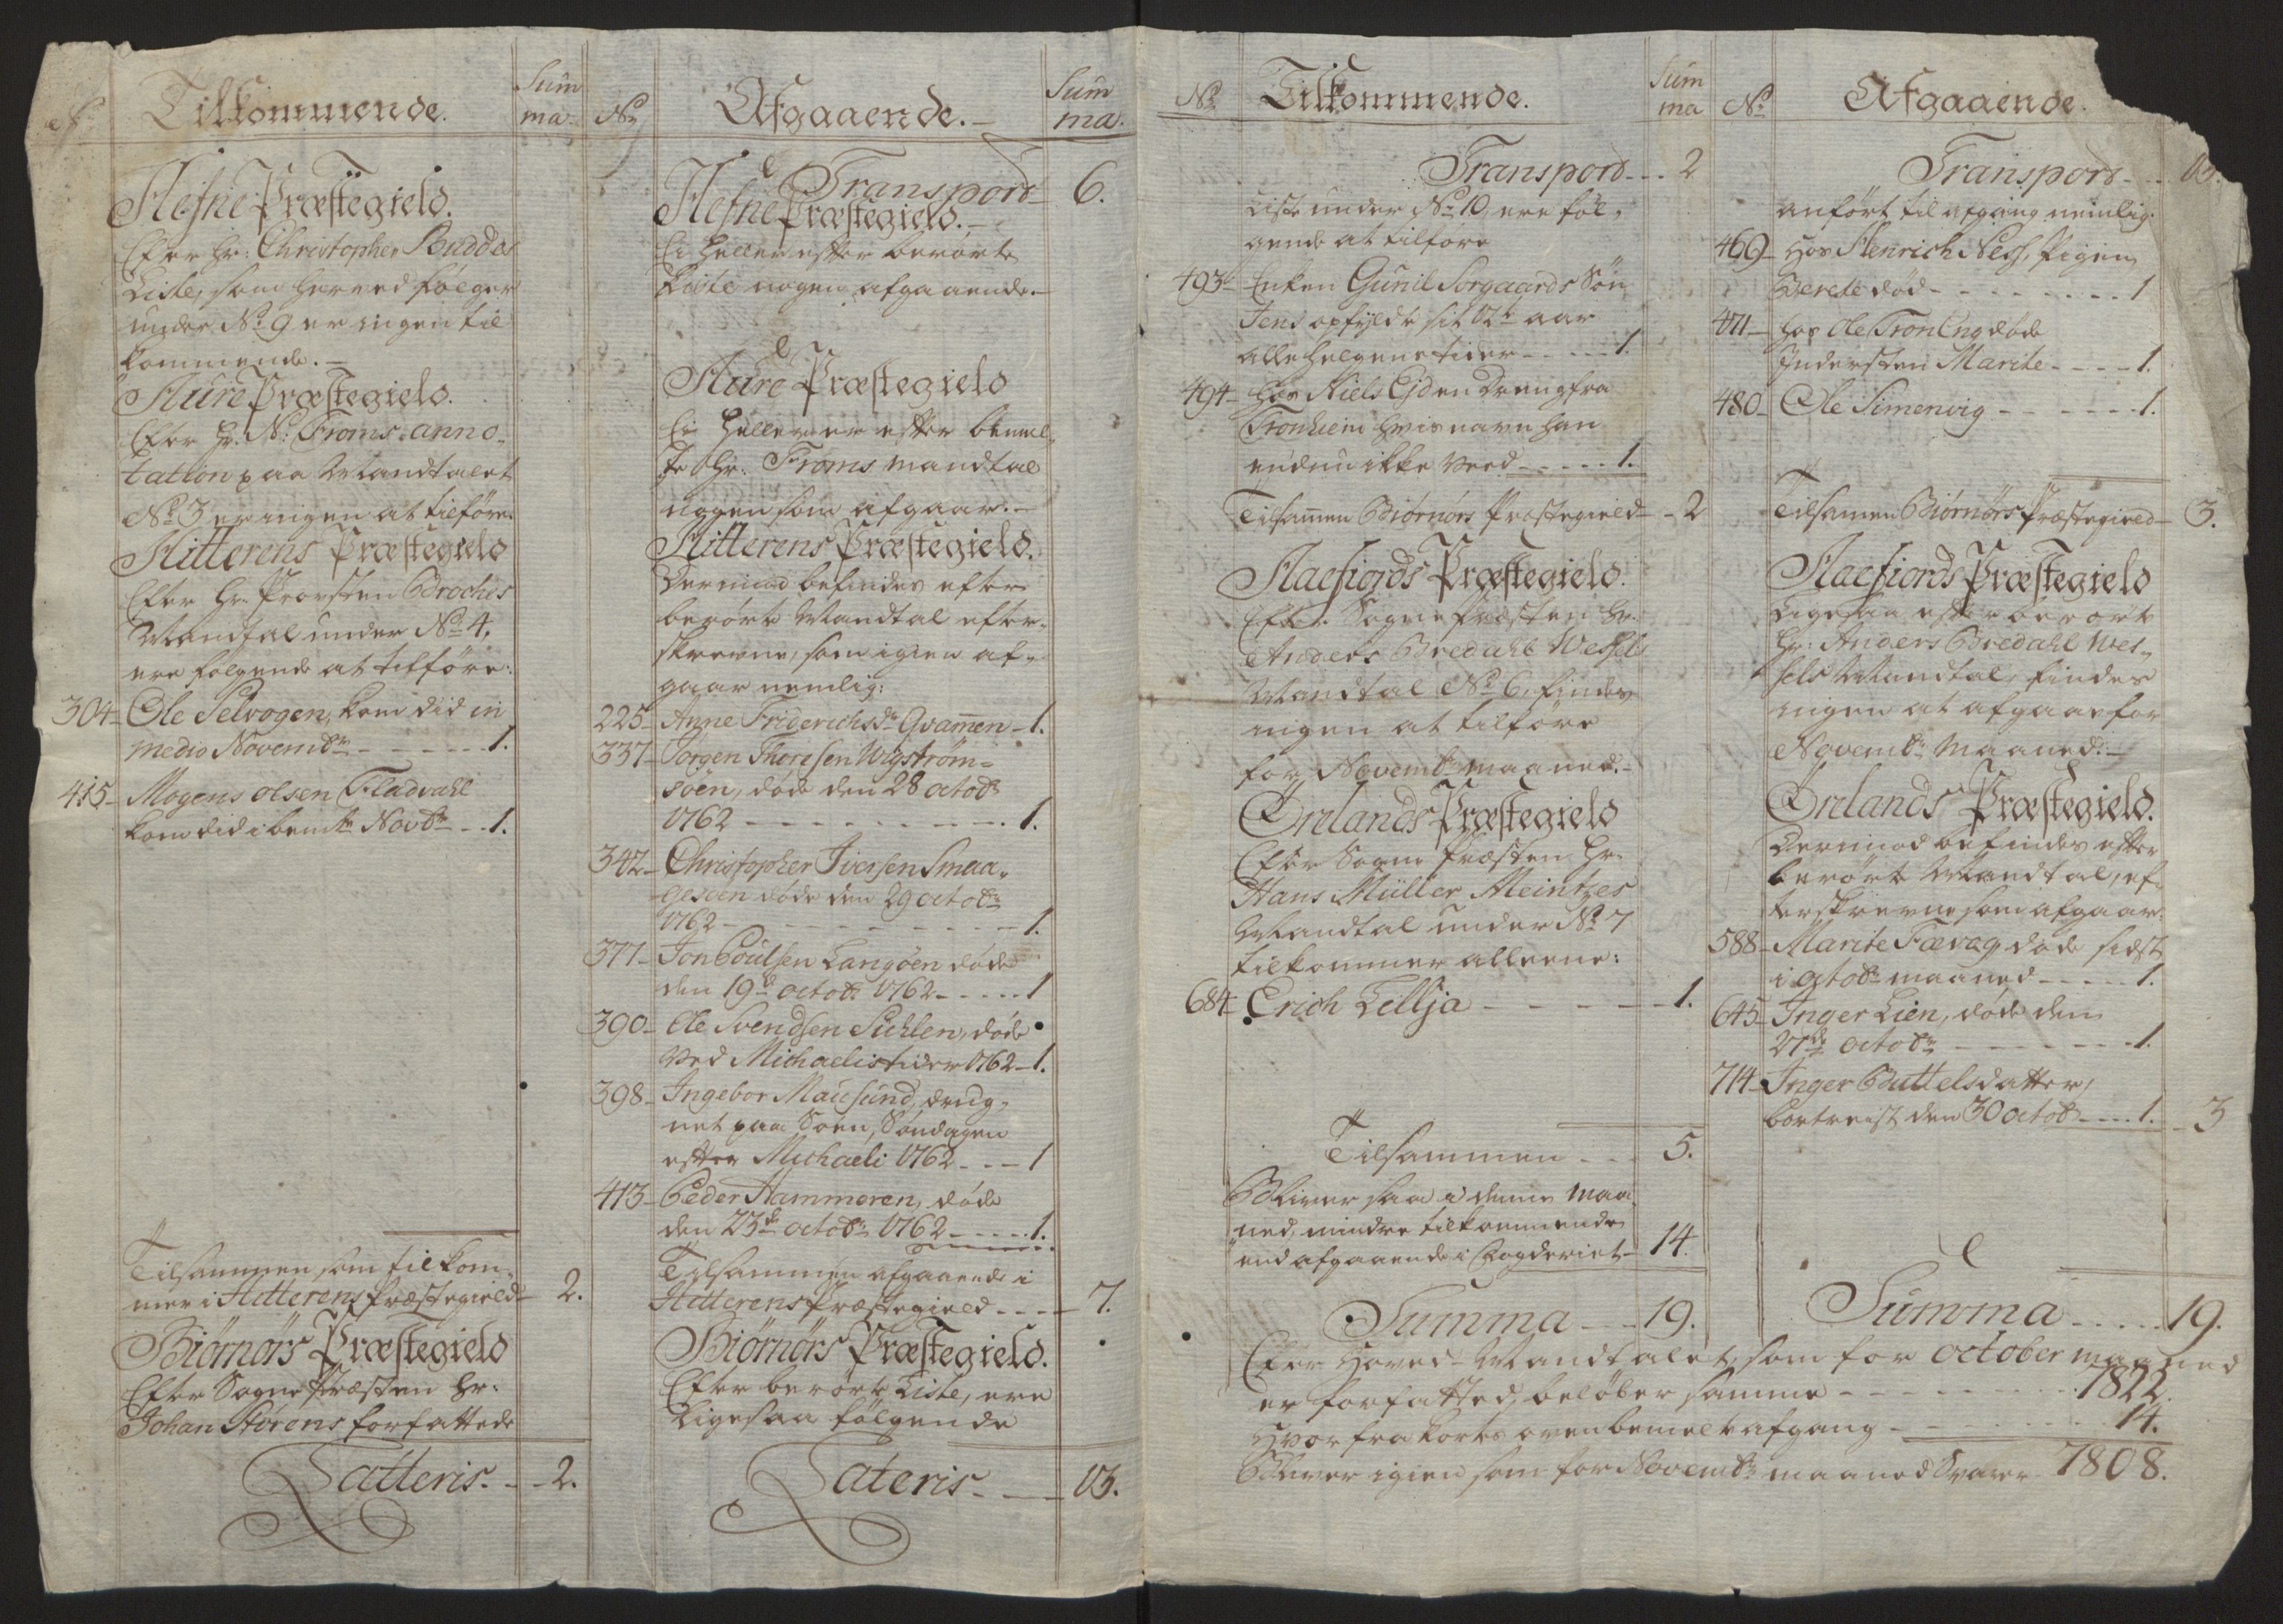 Tilkommende.
Sum
ma
Hefne Præstegield.
Efter Hr: Christopher Buddes
Liste, som herved følger
under No 9 er ingen til
kommende.
Aure Præstegield.
Efter Hr. N: Froms anno-
tation paa Mandtalet
No 3 er ingen at tilføre.
Hitterens Præstegield
Efter Hr. Provsten Broches
Mandtal under No 4.
ere følgende at tilføre:
304 - Ole Selvogen, kom did in
medio Novembr - - - 1.
415 - Mogens Olsen Fladvahl
kom did i bemte Novbr - - 1.
Tilsammen som tilkom-
mer i Hitterens Præstegield - 2.
Biørnørs Præstegield
Efter Sogne Præsten Hr:
Johan Størens forfattede
Latteris. - - 2.
No
Afgaaende.
Sum
ma.
Transport 6.
Hefne Præstegield.
Ei heller efter berørte
Liste nogen afgaaende.
Aure Præstegield
Ei heller er efter bemel-
te Hr: Froms mandtal
nogen som afgaar.
Hitterens Præstegield.
Derimod befindes efter
berørte Mandtal efter-
skrevne, som igien af-
gaar nemlig:
225 - Anne Friderichsdr Qvammen - 1.
337 - Jørgen Thoresen Ulystrøm-
søen, døde den 28 octobr
1762 - - - 1.
342 - Christopher Iversen Smaa-
gesien døde den 29 octobr
1762 - - - 1.
377 - Jon Poulsen Langøen døde
den 19de octobr 1762 - - - 1
390 - Ole Svendsen Sichlen, døde
ved Michaelis tider 1762 - 1.
398 - Ingebor Mausund, drug-
net paa Søen, Søndagen
efter Michaeli 1762 - - - 1
413 - Peder Hammeren, døde
den 23de octobr 1762 - - - 1.
Tilsammen afgaaende i
Hitterens Præstegield - - - 7.
Biørnørs Præstegield.
Efter berørte Liste, ere
Ligesaa følgende
Lateris - - 13.
No
Tilkommende.
Sum
ma
Transport - - 2
Liste under No 10, ere føl-
gende at tilføre
493 - Enken Gunil Sorgaards Søn
Jens opfyldt sit 12te aar
alle helgens tider - - - 1.
494 - hos Niels Eid en Dreng fra
Tronhiem hvis navn han
endnu ikke veed - - - 1.
Tilsammen Biørnørs Præstegield - 2
Aaefiords Præstegield.
Efter Sogne Præsten Hr:
Anders Bredahl Wessels
Mandtal No 6, findes
ingen at tilføre
for Novembr maaned.
Ørelands Præstegield
Efter Sogne Præsten Hr.
Hans Müller Meintzes
Mandtal under No 7
tilkommer alleene:
684 - Erich Tellsja - - - 1.
Tilsammen - - 5.
Bliver saa i denne Maa-
ned, mindre tilkommende
end afgaaende i Fogderiet - 14.
Summa - - 19.
No
Afgaaende.
Transport - - 13.
anført til afgang nemlig:
469 - Hos Henrich Ness, Pigen
Berete død - - - 1
471 - hos Ole Troneng døde
Indersten Marite - - - 1.
480 - Ole Simenvig - - - 1.
Tilsamen Biørnørs Præstegield - 3.
Aaefiords Præstegield
Ligesaa efter berørte
Hr: Anders Bredahl Wes-
sels Mandtal, findes
ingen at afgaae for
Novembr Maaned:
Ørelands Præstegield.
Derimod befindes efter
berørte Mandtal, ef-
terskrevne som afgaar:
588 - Marite Fævaag døde sidst
i octobr maaned - - - 1.
645 - Inger Lien, døde den
27de octobr - - - 1.
714 - Inger Buttelsdatter,
bortreist den 30 octobr - - - 1. - 3
Summa - - - 19.
Efter Hoved-Mandtalet, som for october maaned
er forfatted, beløber samme - - - 7822.
Hvor fra kortes ovenbemelte afgang - - - 14.
Bliver igien som for Novembr maaned svarer 7808.